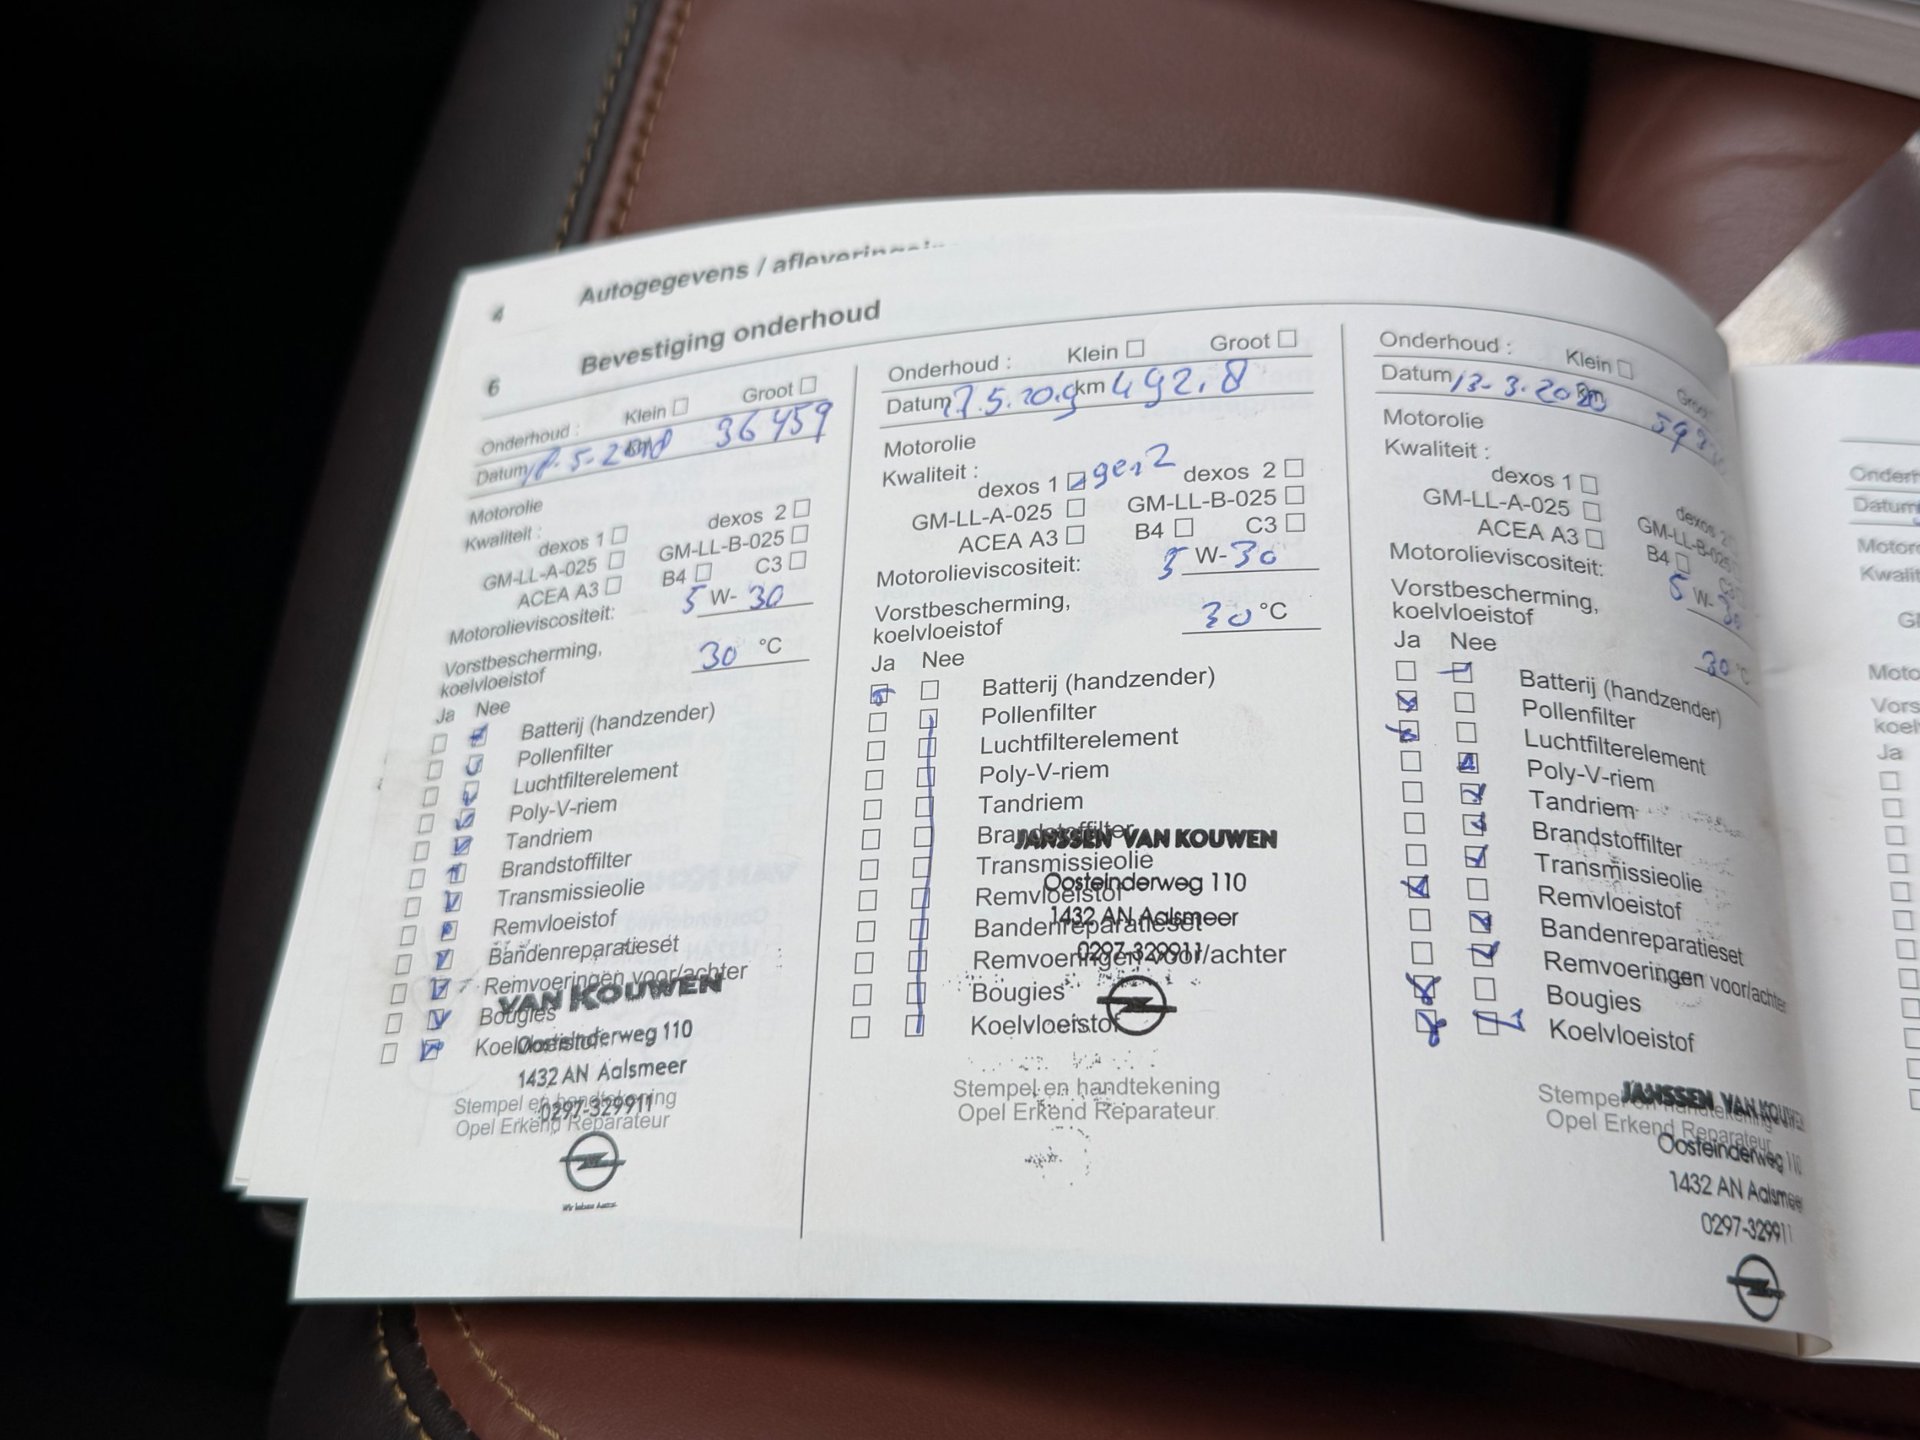 4 Autogegevens /
6 Bevestiging onderhoud
Onderhoud : Klein Groot
Datum km 36459
Motorolie
Kwaliteit :
dexos 1 dexos 2
GM-LL-A-025 GM-LL-B-025
ACEA A3 B4 C3
Motorolieviscositeit: 5 W- 30
Vorstbescherming,
koelvloeistof 30 °C
Ja Nee
Batterij (handzender)
Pollenfilter
Luchtfilterelement
Poly-V-riem
Tandriem
Brandstoffilter
Transmissieolie
Remvloeistof
Bandenreparatieset
Remvoeringen voor/achter
Bougies
Koelvloeistof
VAN KOUWEN
Oosteinderweg 110
1432 AN Aalsmeer
0297-329911
Stempel en handtekening
Opel Erkend Reparateur
Onderhoud : Klein Groot
Datum km 492.8
Motorolie
Kwaliteit :
dexos 1 gen2 dexos 2
GM-LL-A-025 GM-LL-B-025
ACEA A3 B4 C3
Motorolieviscositeit: 5 W- 30
Vorstbescherming,
koelvloeistof 30 °C
Ja Nee
Batterij (handzender)
Pollenfilter
Luchtfilterelement
Poly-V-riem
Tandriem
Brandstoffilter
Transmissieolie
Remvloeistof
Bandenreparatieset
Remvoeringen voor/achter
Bougies
Koelvloeistof
JANSSEN VAN KOUWEN
Oosteinderweg 110
1432 AN Aalsmeer
0297-329911
Stempel en handtekening
Opel Erkend Reparateur
Onderhoud : Klein Groot
Datum 13-3-2020 km
Motorolie
Kwaliteit :
dexos 1 dexos 2
GM-LL-A-025 GM-LL-B-025
ACEA A3 B4
Motorolieviscositeit: 5 W- 30
Vorstbescherming,
koelvloeistof 30 °C
Ja Nee
Batterij (handzender)
Pollenfilter
Luchtfilterelement
Poly-V-riem
Tandriem
Brandstoffilter
Transmissieolie
Remvloeistof
Bandenreparatieset
Remvoeringen voor/achter
Bougies
Koelvloeistof
JANSSEN VAN KOUWEN
Oosteinderweg 110
1432 AN Aalsmeer
0297-329911
Stempel en handtekening
Opel Erkend Reparateur
Datum
Ja